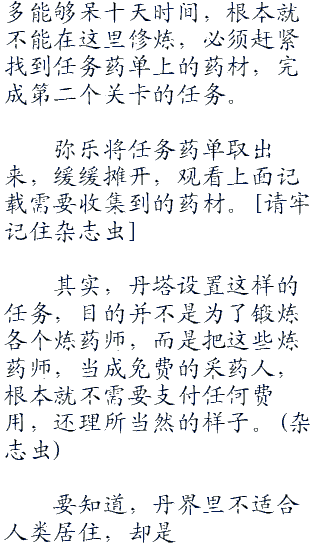 多能够呆十天时间，根本就
不能在这里修炼，必须赶紧
找到任务药单上的药材，完
成第二个关卡的任务。
弥乐将任务药单取出
来，缓缓摊开，观看上面记
载需要收集到的药材。[请牢
记住杂志虫]
其实，丹塔设置这样的
任务，目的并不是为了锻炼
各个炼药师，而是把这些炼
药师，当成免费的采药人，
根本就不需要支付任何费
用，还理所当然的样子。(杂
志虫)
要知道，丹界里不适合
人类居住，却是